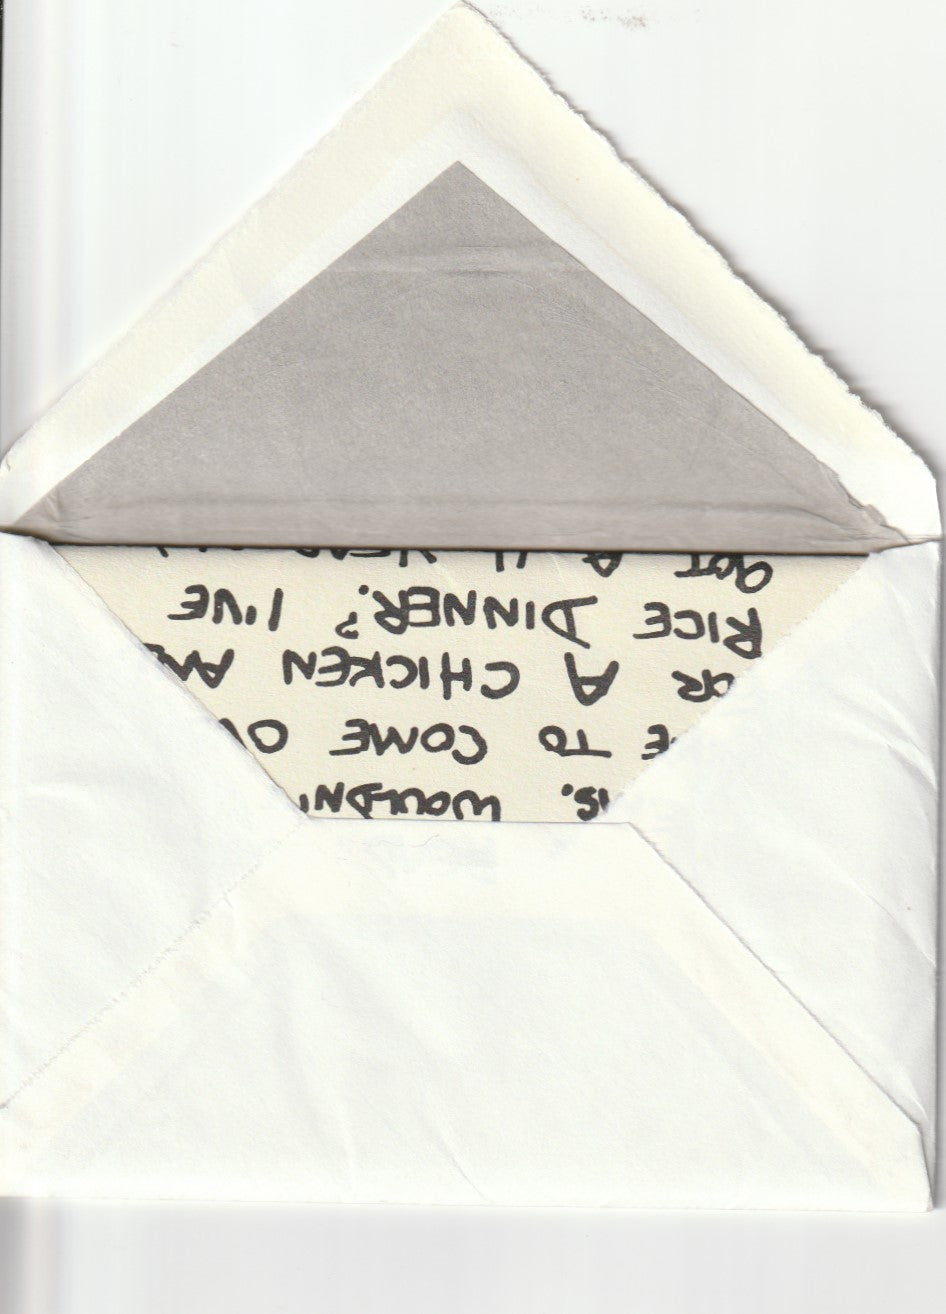 IS. WOULDN'
E TO COME O
OR A CHICKEN AN
RICE DINNER? I'VE
GOT A